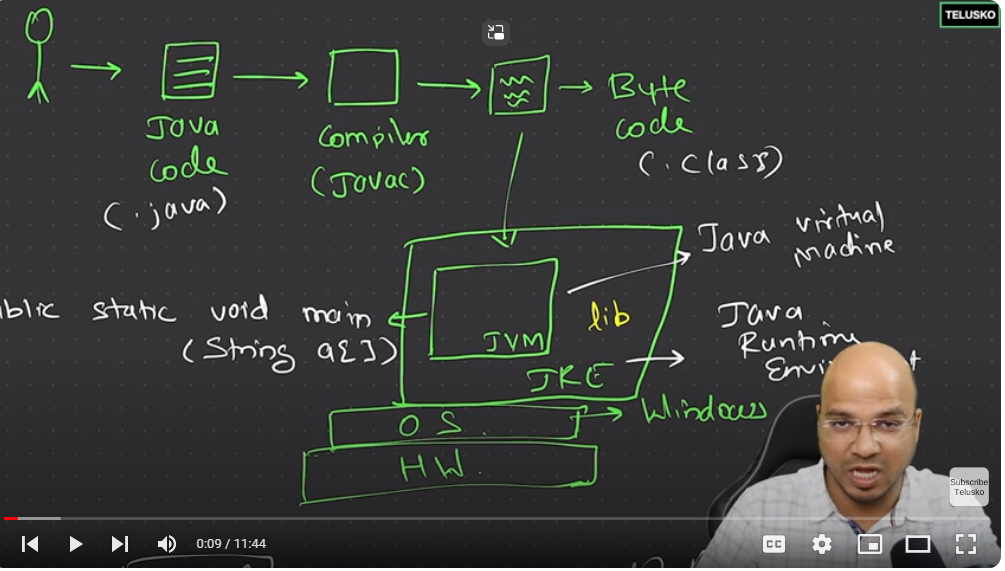 TELUSKO
Java
code
(.java)
Compiler
(Javac)
Byte
code
(.class)
Java virtual
machine
public static void main
(String a[])
JVM
lib
JRE
Java
Runtime
OS.
Windows
HW.
Subscribe
Telusko
0:09 / 11:44
CC